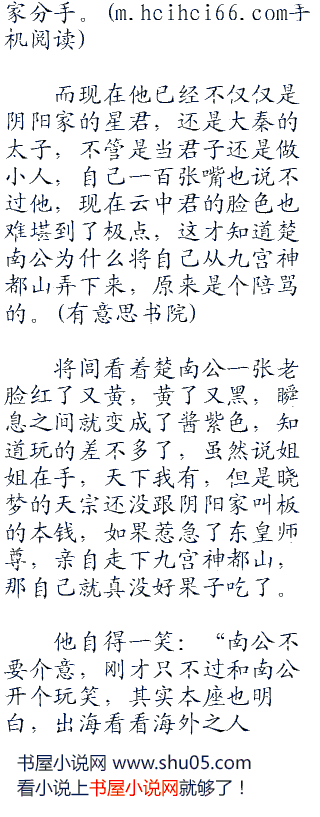 家分手。(m.hcihci66.com手
机阅读)
而现在他已经不仅仅是
阴阳家的星君，还是大秦的
太子，不管是当君子还是做
小人，自己一百张嘴也说不
过他，现在云中君的脸色也
难堪到了极点，这才知道楚
南公为什么将自己从九宫神
都山弄下来，原来是个陪骂
的。(有意思书院)
将闾看着楚南公一张老
脸红了又黄，黄了又黑，瞬
息之间就变成了酱紫色，知
道玩的差不多了，虽然说姐
姐在手，天下我有，但是晓
梦的天宗还没跟阴阳家叫板
的本钱，如果惹急了东皇师
尊，亲自走下九宫神都山，
那自己就真没好果子吃了。
他自得一笑：“南公不
要介意，刚才只不过和南公
开个玩笑，其实本座也明
白，出海看看海外之人
书屋小说网 www.shu05.com
看小说上书屋小说网就够了！